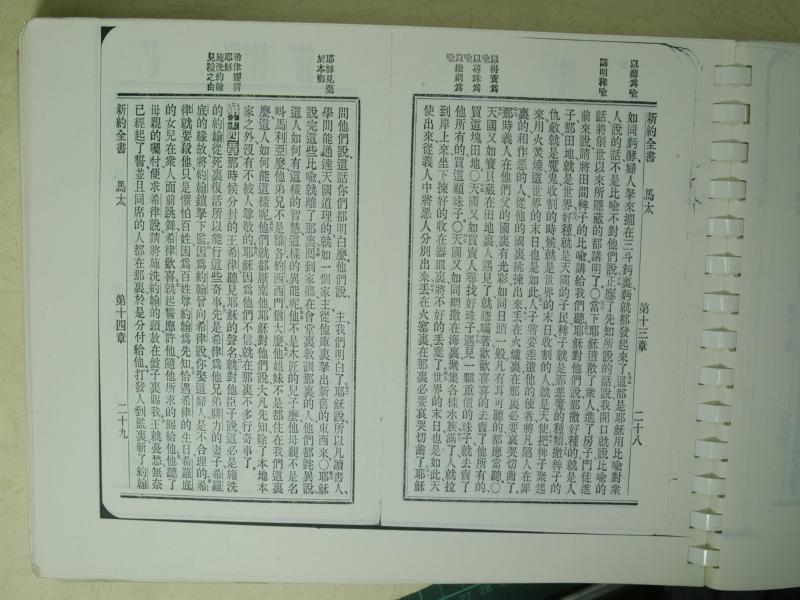 以酵爲喩
講明稗喩
以得寶爲喩
以尋珠爲喩
以撒網爲喩
新約全書　馬太　第十三章　二十八
如同麪酵婦人拏來擱在三斗麪裏麪就都發起來了這都是耶穌用比喩對衆
人說的話不是比喩不對他們說正應了先知所說的話說我開口就說比喩的
話將創世以來所隱藏的都講明了〇當下耶穌遣散了衆人進了房子門徒進
前來說請將田間稗子的比喩講給我們聽耶穌對他們說那撒好種的就是人
子那田地就是世界好種就是天國的子民稗子就是那惡魔的種類撒稗子的
仇敵就是魔鬼收割的時候就是世界的末日收割的人就是天使把稗子聚起
來用火焚燒這世界的末日也是如此人子將要差遣他的使者將凡陷人在罪
裏的和作惡的人從他的國裏挑揀出來丟在火爐裏在那裏必要哀哭切齒了
那時義人在他們父的國裏有光彩如同日頭一般凡有耳可聽的都應當聽〇
天國又如寶貝藏在田地裏人遇見了就隱瞞著歡歡喜喜的去賣了他所有的
買這塊田地〇天國又如買賣人尋找好珠子遇見一顆重價的珠子就去賣了
他所有的買這顆珠子〇天國又如同網撒在海裏聚集各樣水族滿了人就拉
到岸上來坐下揀好的收在器皿裏將不好的丟棄了世界的末日也是如此天
使出來從義人中將惡人分別出來丟在火窰裏在那裏必要哀哭切齒了耶穌
耶穌見棄於本鄉
希律謬猜耶穌
施洗約翰見殺之由
問他們說這話你們都明白麼他們說主我們明白了耶穌說所以凡讀書人
學問能通達天國道理的就如一個家主從他庫裏拏出新舊的東西來〇耶穌
說完這些比喩就離了那裏回到家鄉在會堂裏敎訓那裏的人他們都詫異說
這人如何有這樣的智慧這樣的異能呢他不是木匠的兒子麼他母親不是名
叫馬利亞麼他弟兄不是雅各約西西門猶大麼他姐妹不是都住在我們這裏
麼這人如何能這樣呢他們就都厭棄他耶穌對他們說大凡先知除了本地本
家之外沒有不被人尊敬的耶穌因爲他們不信就在那裏不多行奇事了
第十四章那時候分封的王希律聽見耶穌的聲名就對他臣子說這必是施洗
的約翰從死裏復活所以能行這些奇事先是希律爲他兄弟腓力的妻子希羅
底的緣故將約翰鎖拏下監因爲約翰曾向希律說你娶這婦人是不合理的希
律就要殺他只是懼怕百姓因爲百姓尊約翰爲先知恰遇希律的生日希羅底
的女兒在衆人面前跳舞希律歡喜就起誓應許他隨他所求的賜給他他聽了
母親的囑咐便求希律說請將施洗約翰的頭放在盤子裏賜我王就憂愁無奈
已經起了誓並且同席的人都在那裏於是分付給他打發人到監裏斬了約翰
新約全書　馬太　第十四章　二十九